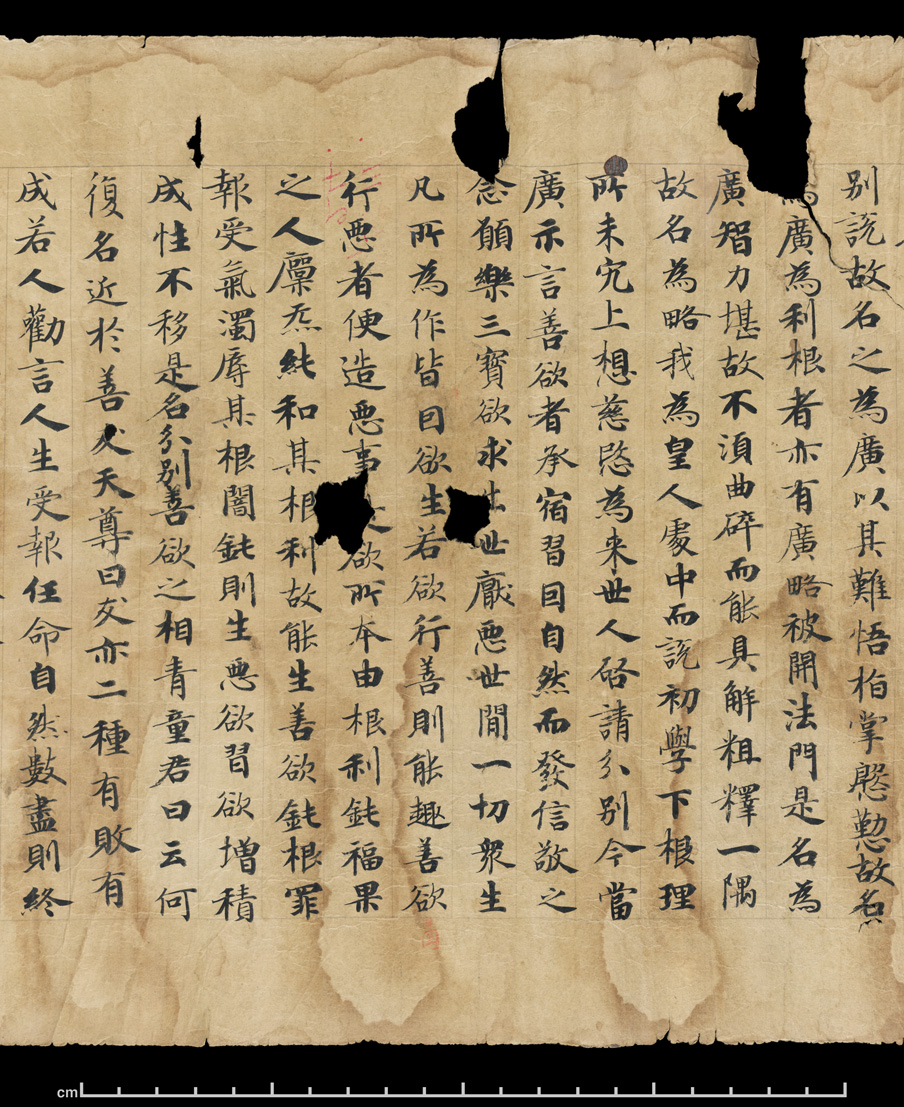 别説故名之為廣以其難悟指掌慇懃故名
為廣為利根者亦有廣略被開法門是名為
廣智力堪故不湏曲碎而能具解粗釋一隅
故名為略我為皇人處中而説初學下根理
所未究上想慈愍為来世人啓請分别今當
廣示言善欲者承宿習因自然而發信敬之
念願樂三寳欲求出世厭惡世間一切衆生
凡所為作皆因欲生若欲行善則能趣善欲
行惡者便造惡事是欲所本由根利鈍福果
之人禀炁純和其根利故能生善欲鈍根罪
報受氣濁辱其根闇鈍則生惡欲習欲增積
成性不移是名分别善欲之相青童君曰云何
復名近於善友天尊曰友亦二種有敗有
成若人勸言人生受報任命自然數盡則終